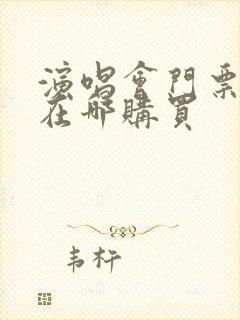 演唱會門票
在哪購買
韦杵